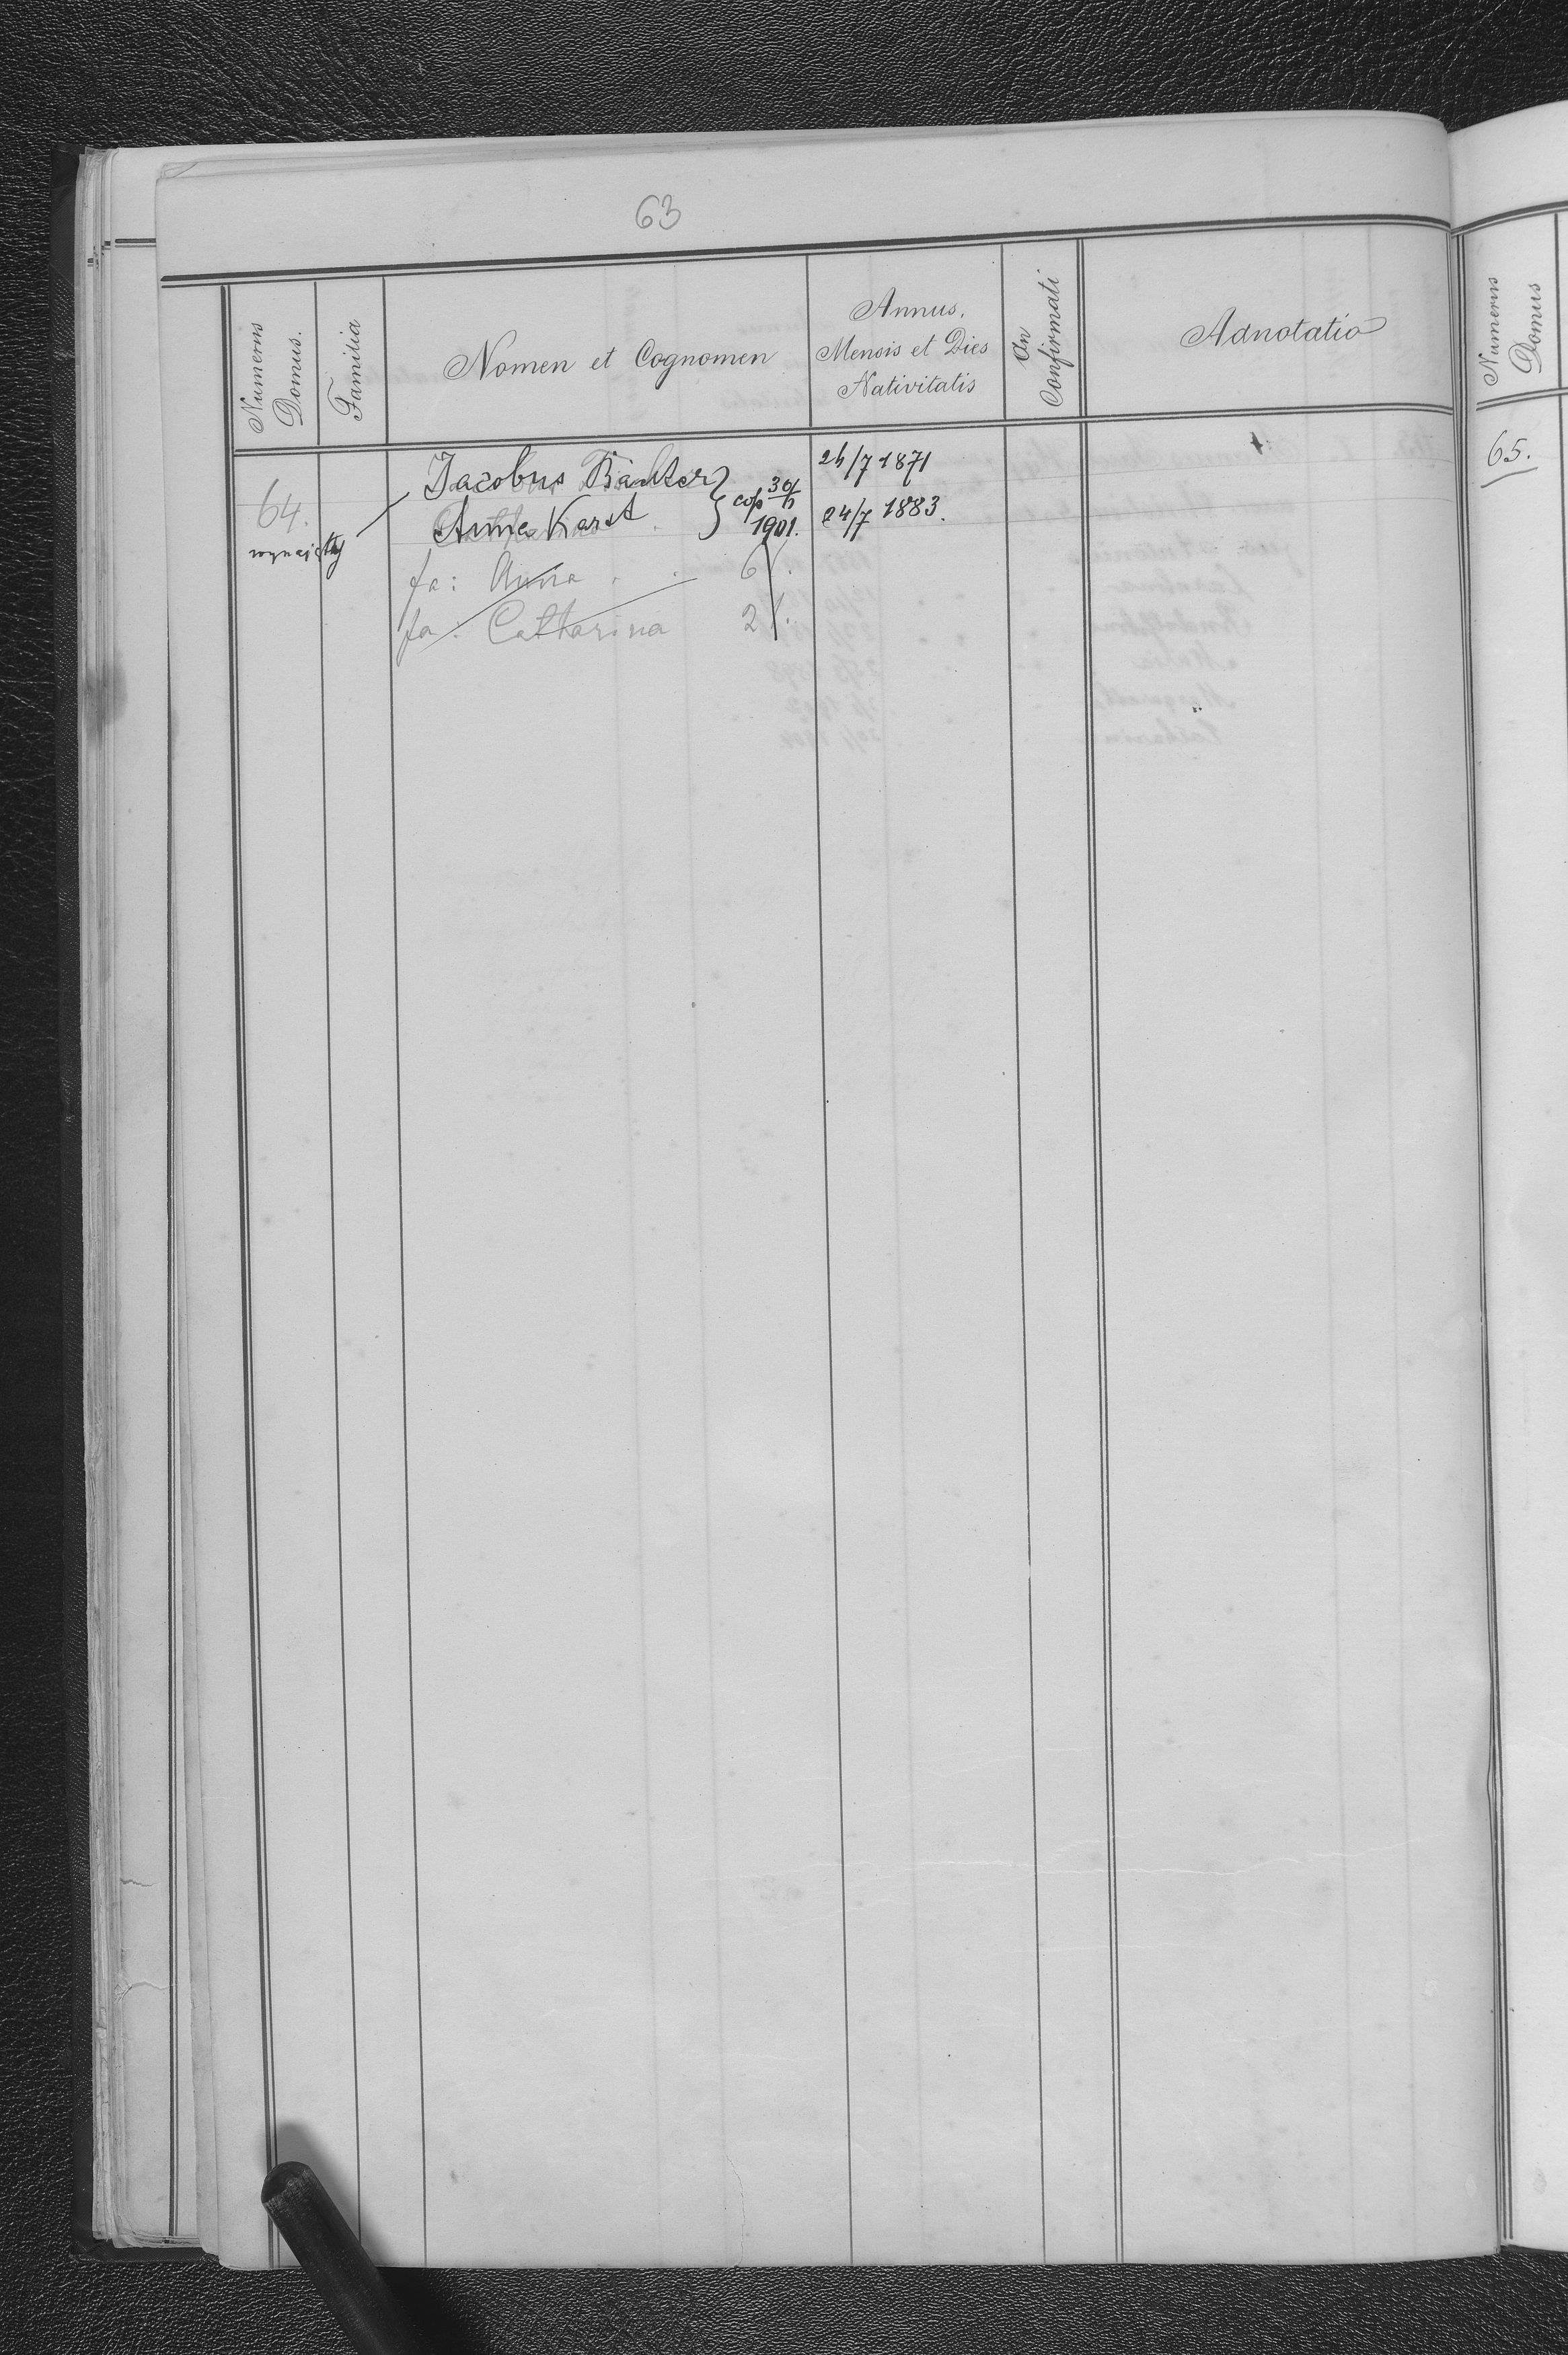 63
Numerus Domus.
Familia
Nomen et Cognomen
Annus, Mensis et Dies Nativitatis
An Confirmati
Adnotatio
Numerus Domus
64.
wynajęty
Jacobus
24/7 1871
Anna Karst
cop
1901.
24/7 1883.
fa: Anna 6
fa: Catharina 2
65.